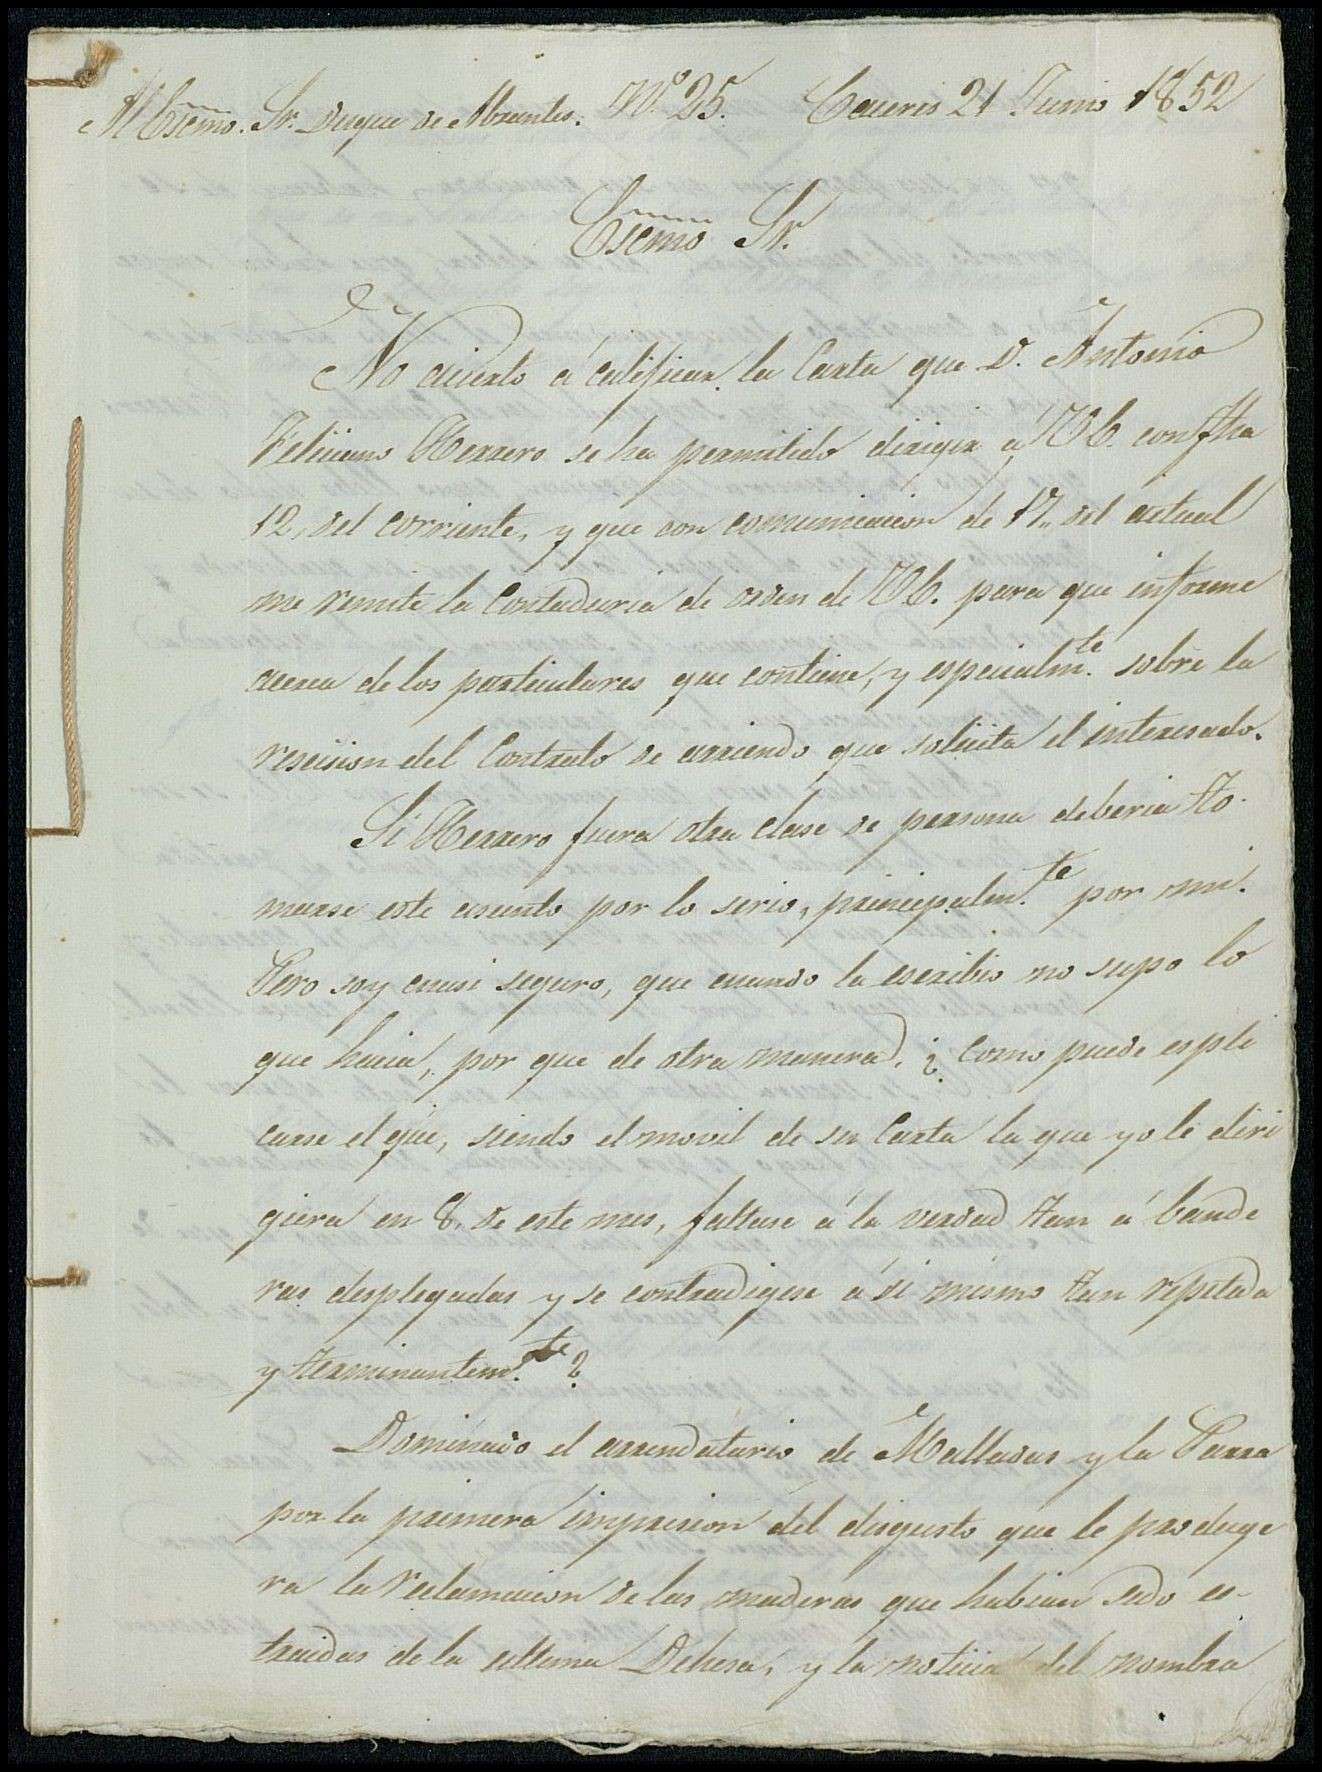 Al Esc̃mo. Sr. Duque de Abrantes. Nº 25. Caceres 21 Junio 1852
Escmo Sr.
No acierto á calificar la Carta que D. Antonio
Feliciano Herrero se ha permitido dirigir á VE. con fha
12, del corriente, y que con comunicacion de 17,, del actual
me remite la Contaduria de orden de VE. para que informe
acerca de los particulares que contiene, y especialm.te sobre la
rescision del Contrato de arriendo que solicita el interesado.
Si Herrero fuera otra clase de persona deberia to-
marse este asunto por lo serio, principalm.te por mi.
Pero soy cuasi seguro, que cuando la escribio no supo lo
que hacia, por que de otra manera, ¿como puede espli
carse el que, siendo el movil de su Carta la que yo le diri
giera en 8, de este mes, faltase á la verdad tan á bande
ras desplegadas y se contradigese á si mismo tan repetida
y terminantem.te?
Dominado el arrendatario de Malladas y la Parra
por la primera impresion del disgusto que le produge
ra la reclamacion de las maderas que habian sido es-
traidas de la ultima Dehesa, y la noticia del nombra